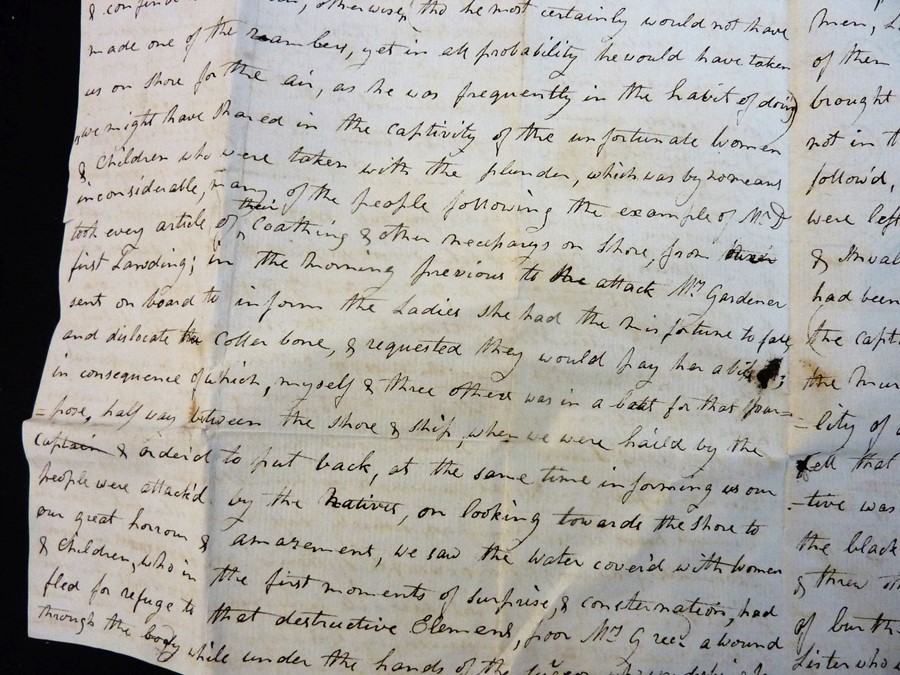 otherwise, tho he most certainly would not have
made one of the number, yet in all probability he would have taken
us on shore for the air, as he was frequently in the habit of doing
we might have shared in the captivity of the unfortunate women
& Children who were taken with the plunder, which was by no means
inconsiderable, many of the people following the example of Mr. D
took every article of their Cloathing & other necessarys on shore, from
first Landing; in the morning previous to the attack Mrs Gardener
sent on board to inform the Ladies she had the misfortune to fall,
and dislocate the Coller bone, & requested they would pay her a visit;
in consequence of which, myself & three others was in a boat for that pur=
=pose, half way between the shore & ship, when we were hail'd by the
Captain & order'd to put back, at the same time informing us our
people were attack'd by the Natives, on looking towards the shore to
our great horrour & amazement, we saw the water cover'd with women
& Children, who in the first moments of surprise, & consternation, had
fled for refuge to that destructive Element, poor Mrs Gree a wound
through the body while under the hands of the
Men,
of them
brought
not in
follow'd,
were left
&
had been
the
the
=lity of
fell that
=tive was
the black
& threw
of
Sister who